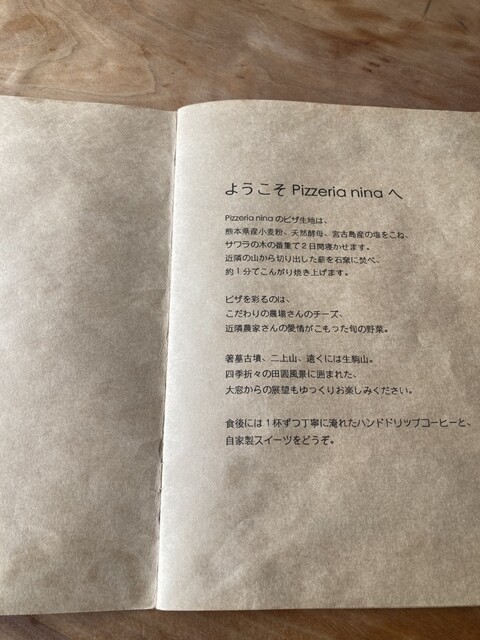 ようこそ Pizzeria nina へ
Pizzeria nina のピザ生地は、
熊本県産小麦粉、天然酵母、宮古島産の塩をこね、
サワラの木の番重で2日間寝かせます。
近隣の山から切り出した薪を石窯に焚べ、
約1分でこんがり焼き上げます。
ピザを彩るのは、
こだわりの農場さんのチーズ、
近隣農家さんの愛情がこもった旬の野菜。
箸墓古墳、二上山、遠くには生駒山。
四季折々の田園風景に囲まれた、
大窓からの展望もゆっくりお楽しみください。
食後には1杯ずつ丁寧に淹れたハンドドリップコーヒーと、
自家製スイーツをどうぞ。